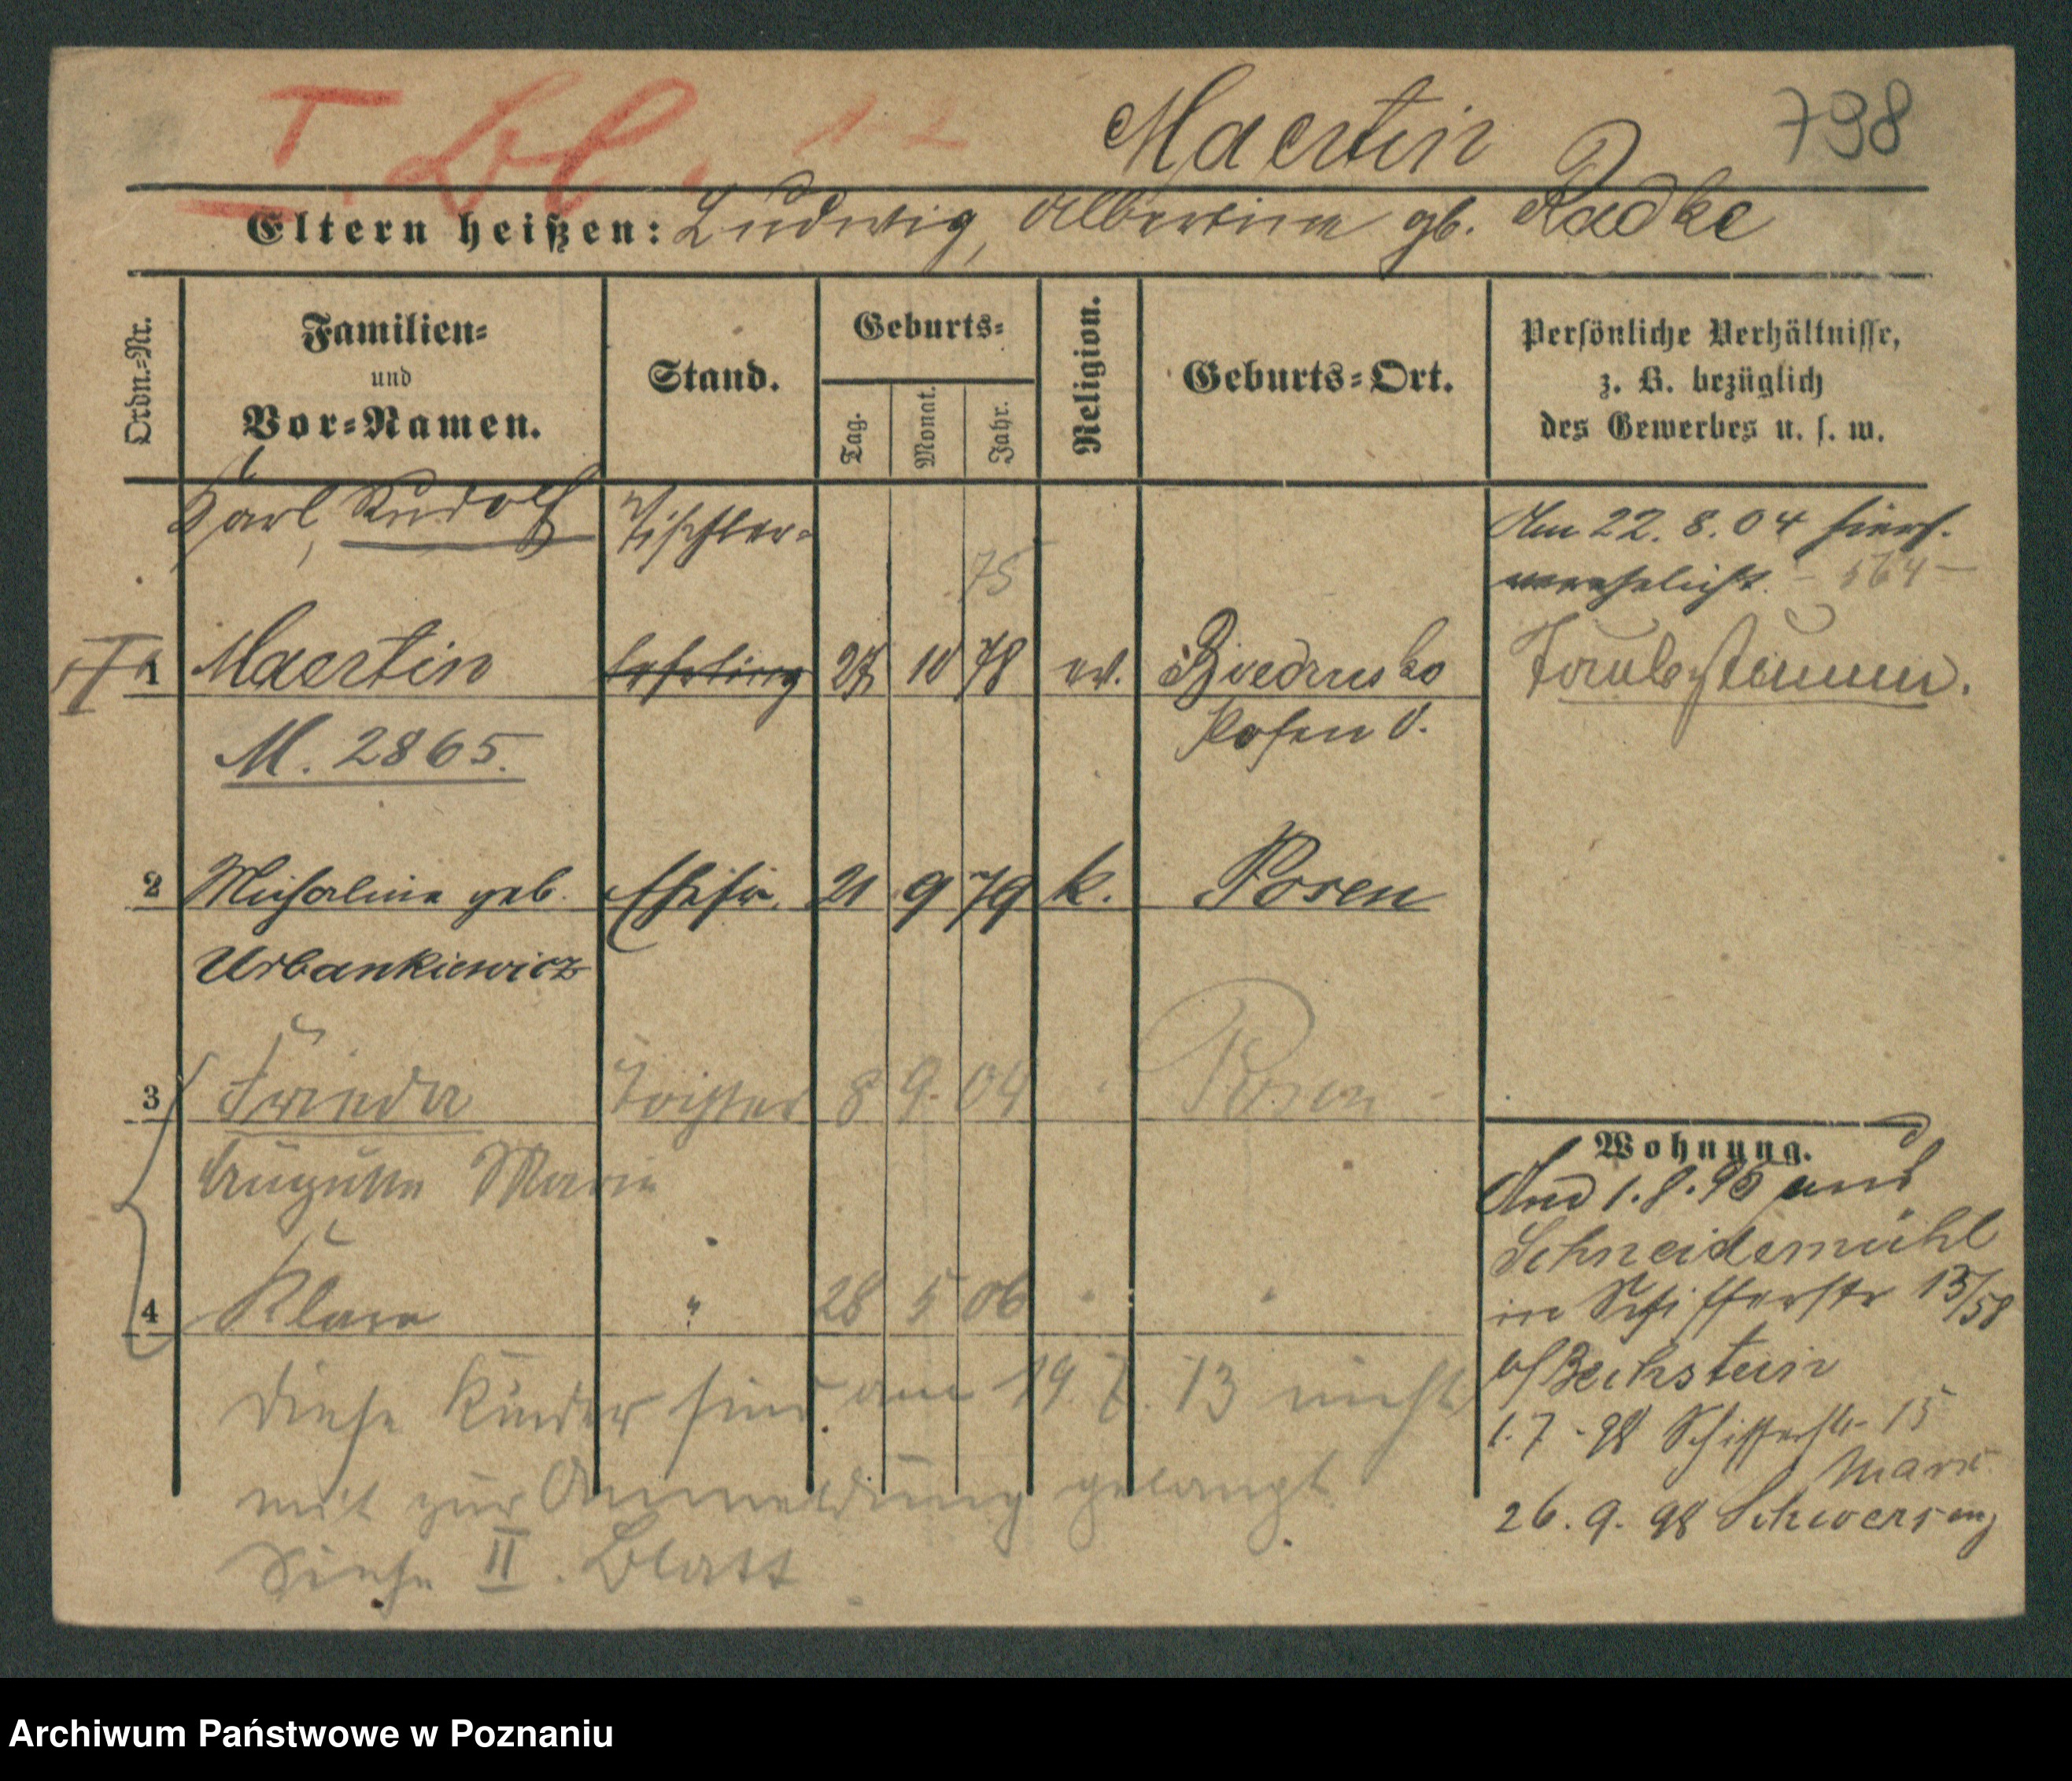 I. Bl. 1-2
Maertin
798
Eltern heißen: Ludwig, Albertine gb. Radke
Ordn.-Nr.
Familien-
und
Vor-Namen.
Stand.
Geburts-
Tag.
Monat.
Jahr.
Religion.
Geburts-Ort.
Persönliche Verhältnisse,
z. B. bezüglich
des Gewerbes u. s. w.
Karl, Rudolf Tischler-
75
Am 22. 8. 04 hiers.
verehelicht. - 564 -
1 Maertin lehrling 27 10 78 ev. Biedrusko Taubstumm.
Posen O.
M. 2865.
2 Michaline geb. Ehefr. 21 9 79 k. Posen
Urbankiewicz
3 Frieda Tochter 8 9. 04 Posen -
Auguste Marie
4 Klara " 28 5 06
Diese Kinder sind am 19. 7. 13 nicht
mit zur Anmeldung gelangt.
Siehe II. Blatt
Wohnung.
And 1. 8. 95 aus
Schneidemühl
in Schifferstr 13/58
b/Bechstein
1. 7. 98 Schifferstr 15
Marx
26. 9. 98 Schwersenz
Archiwum Państwowe w Poznaniu